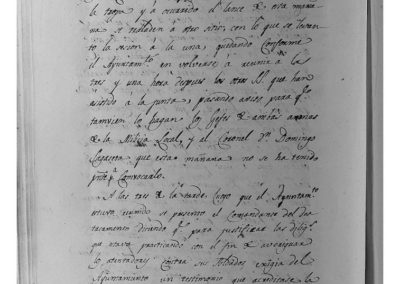 la tropa y á ocurrido el lance de esta maña-
na se trasladen á otro sitio, con lo que se levan-
tó la sesion á la una, quedando conforme
el Ayuntamto en volverse á reunir á las
tres y una hora despues los otros SS. que han
asistido á la junta, pasando avisos para qe
tamvien lo hagan los Gefes de ambas armas
de la Milicia Local, y el Coronel Dn Domingo
que esta mañana no se ha tenido
preste pa convocarle.
A las tres de la tarde luego que el Ayuntamto
estuvo reunido se presentó el Comandante del des-
tacamento diciendo qe para justificar las diligs
que estava practicando con el fin de averiguar
lo contra sus Soldados exigia del
Ayuntamiento un testimonio que acreditase la